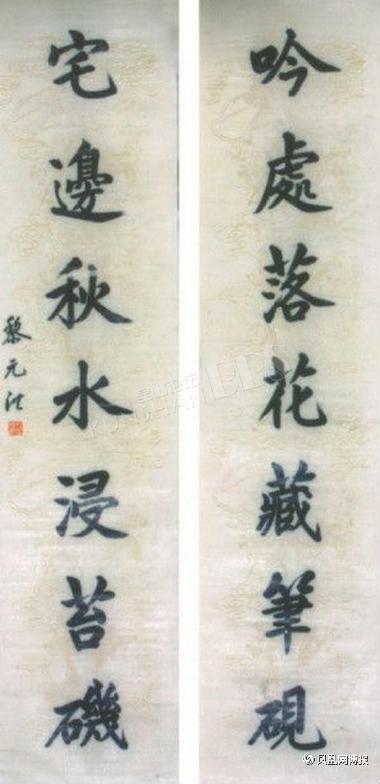 吟處落花藏筆硯
宅邊秋水浸苔磯
黎元洪
凤凰网博报